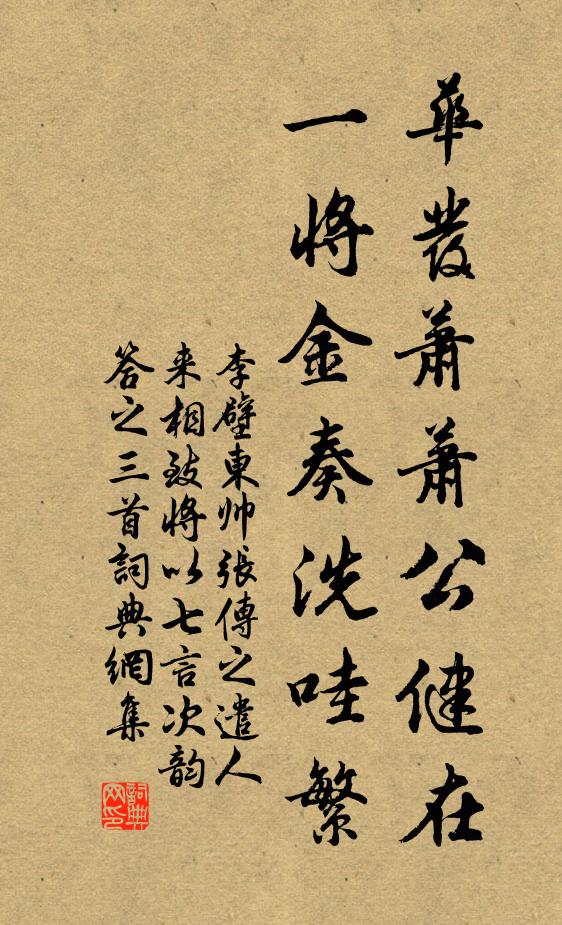 華發蕭蕭公健在
一將金奏洗哇繁
李壁東帅張傳之遣人
来相致將以七言次韵
答之三首詞典網集
詞典网印